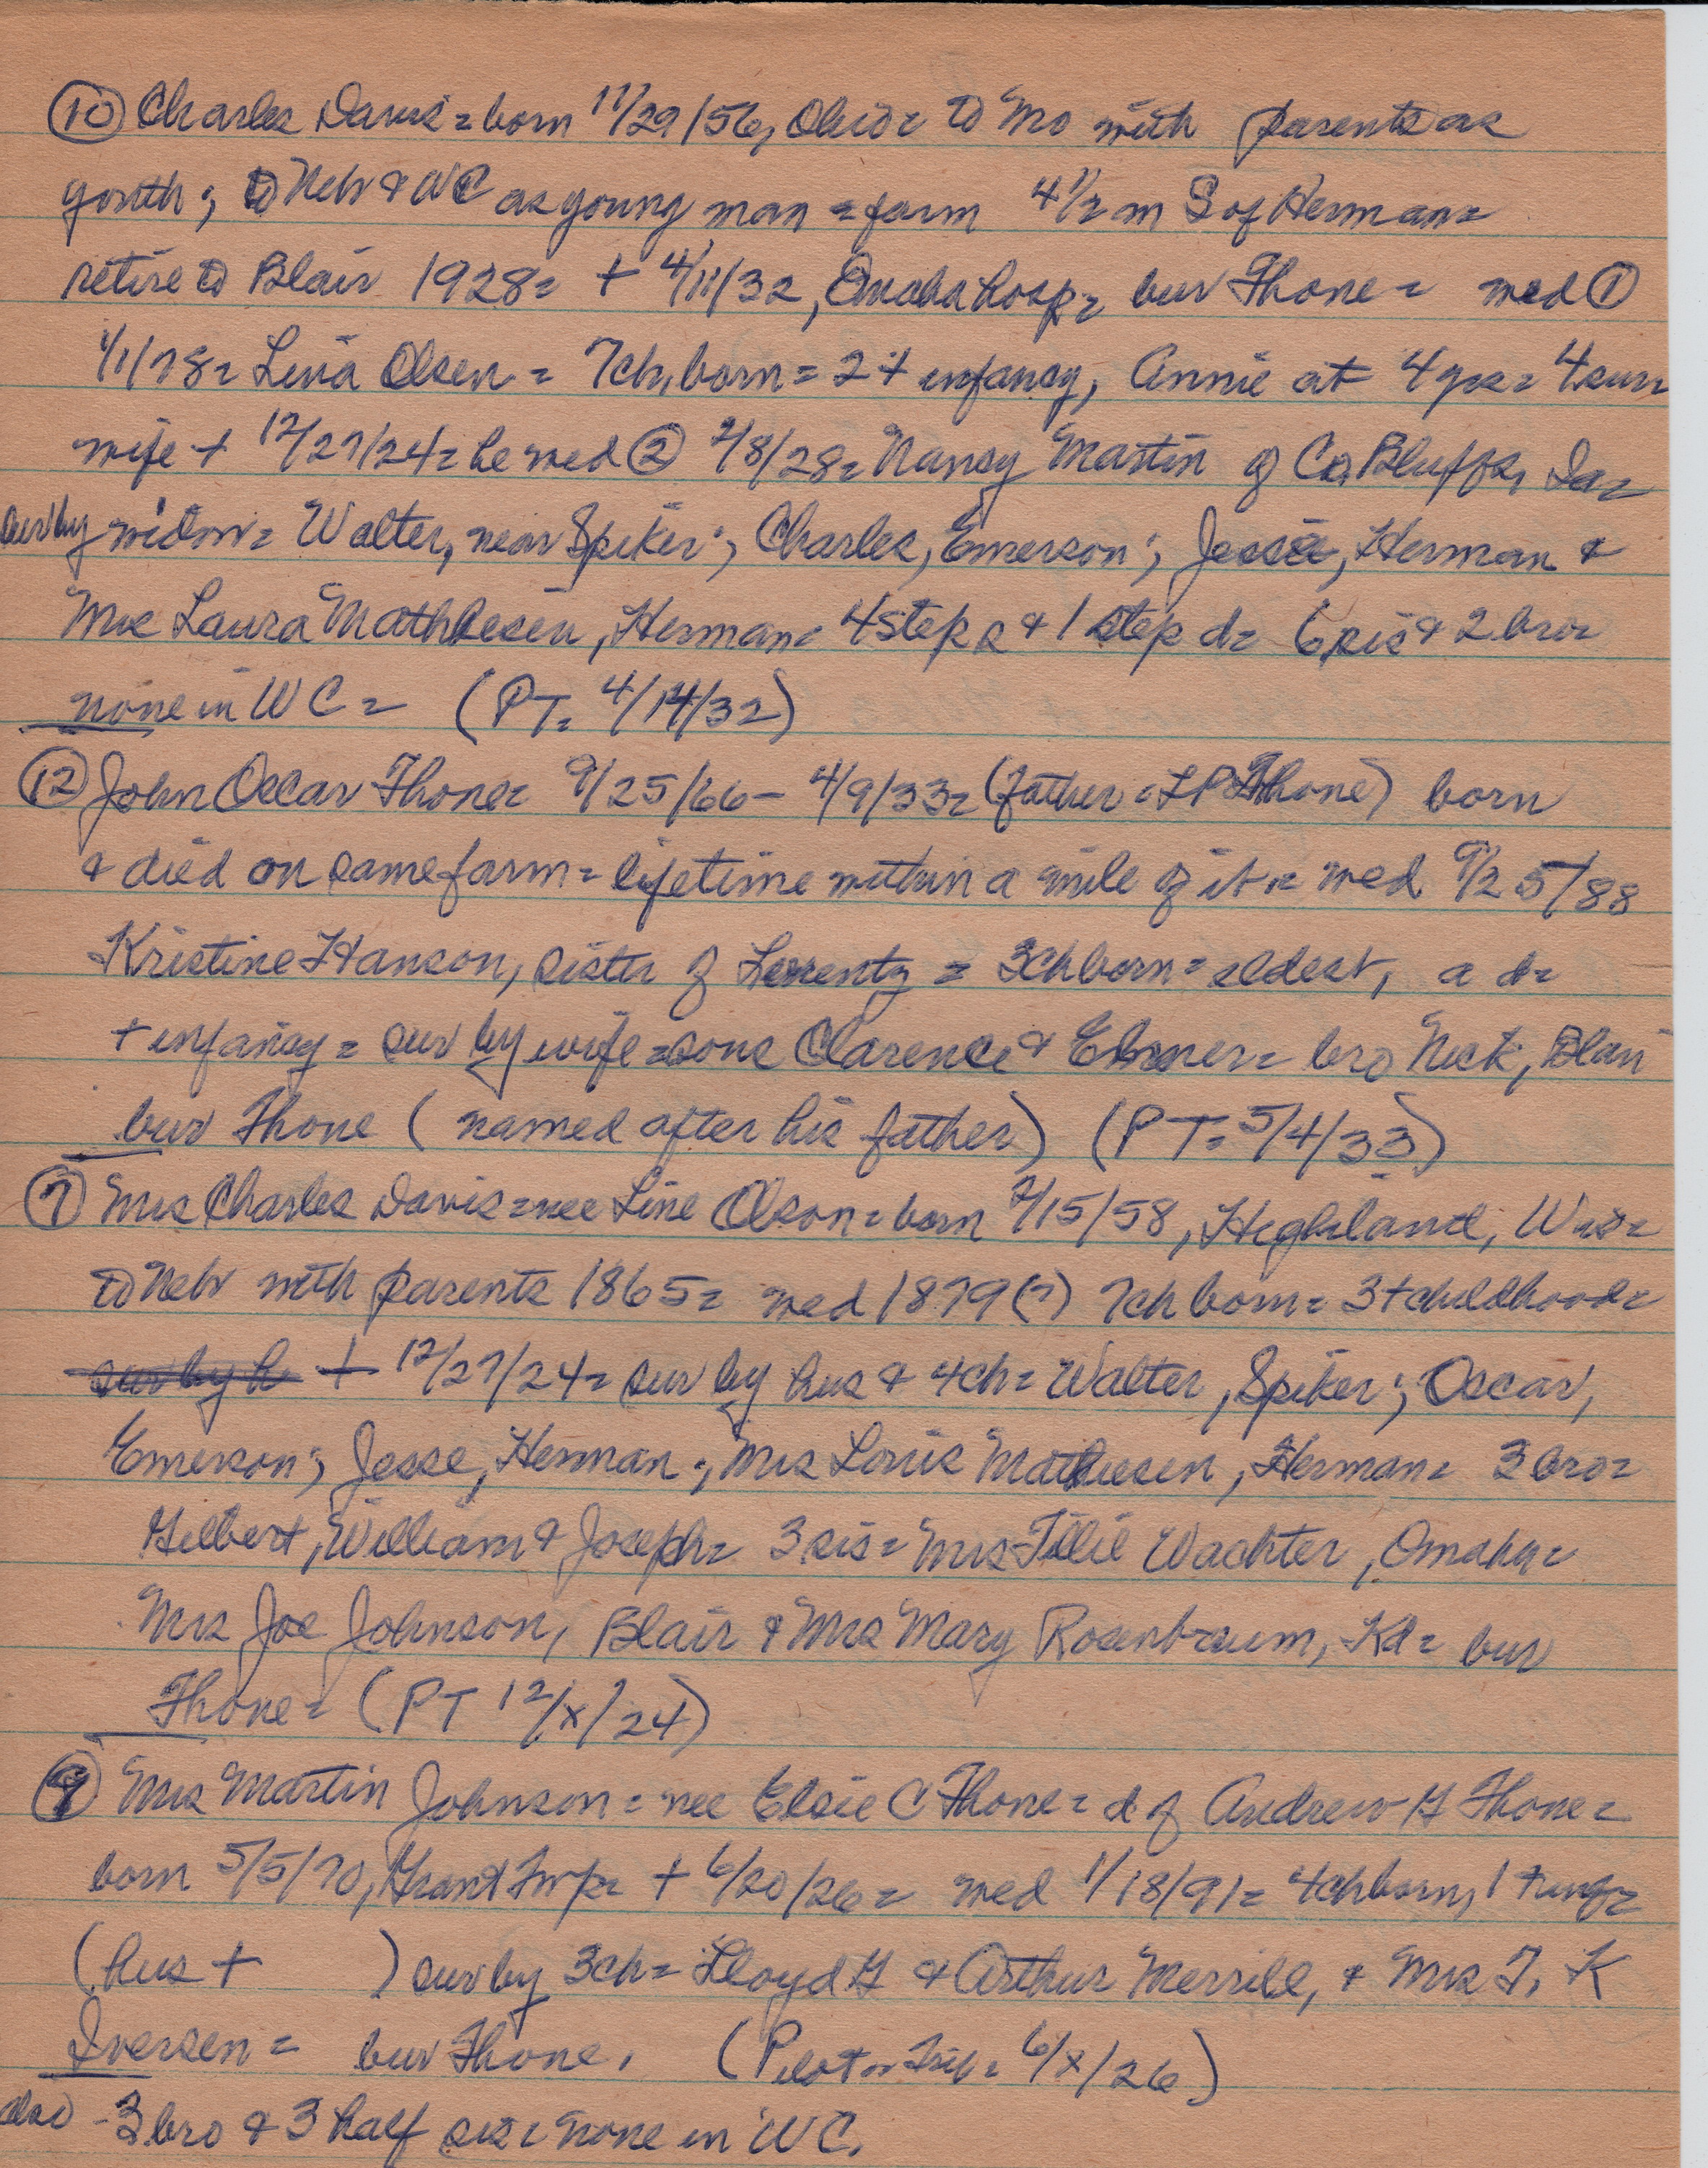 (10) Charles Davis = born 11/29/56, Ohio = to Mo with parents as
youth; to Neb & WC as young man = farm 4 1/2 m S of Herman =
retire to Blair 1928 = + 4/11/32, Omaha hosp = bur Fhone = med (1)
1/1/78 = Lina Olsen = 7 ch, born = 2 + infancy, Annie at 4 yrs = 4 surv
wife + 12/27/24 = he med (2) 2/8/28 = Nancy Martin of Co, Bluffs, Ia =
sur by widow = Walter, near Spiker; Charles, Emerson; Jesse, Herman &
Mrs Laura Mathiesen, Herman = 4 step s & 1 step d = 6 sis & 2 bro =
none in WC = (PT = 4/14/32)
(12) John Oscar Fhone = 9/25/66 - 4/9/33 = (father = LP Fhone) born
& died on same farm = lifetime within a mile of it = med 9/25/88
Kristine Hanson, sister of Lorentz = 3 ch born = eldest, a d =
+ infancy = sur by wife = sons Clarence & Elmer = bro Nick, Blair
bur Fhone (named after his father) (PT = 5/4/33)
(7) Mrs Charles Davis = nee Line Olson = born 2/15/58, Highland, Wis =
to Neb with parents 1865 = med 1879(?) 7 ch born = 3 + childhood =
sur by h + 12/27/24 = sur by hus & 4 ch = Walter, Spiker; Oscar,
Emerson; Jesse, Herman; Mrs Louis Mathiesen, Herman = 3 bro =
Gilbert, William & Joseph = 3 sis = Mrs Tillie Wachter, Omaha =
Mrs Joe Johnson, Blair & Mrs Mary Rosenbaum, Kd = bur
Fhone = (PT 12/x/24)
Mrs Martin Johnson = nee Elsie C Fhone = d of Andrew G Fhone =
born 5/5/70, Grant Twp = + 6/20/26 = med 1/18/91 = 4 ch born, 1 + yng =
(hus + ) sur by 3 ch = Lloyd G & Arthur Merrill, & Mrs T. K
Iversen = bur Fhone. (Pilot = Trib = 6/x/26)
also - 3 bro & 3 half sis = none in WC.